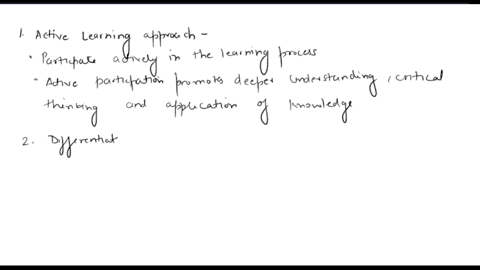 1. Active Learning approach –
• Participate actively in the learning process
• Active participation promotes deeper understanding, critical
thinking and application of knowledge
2. Differentiat